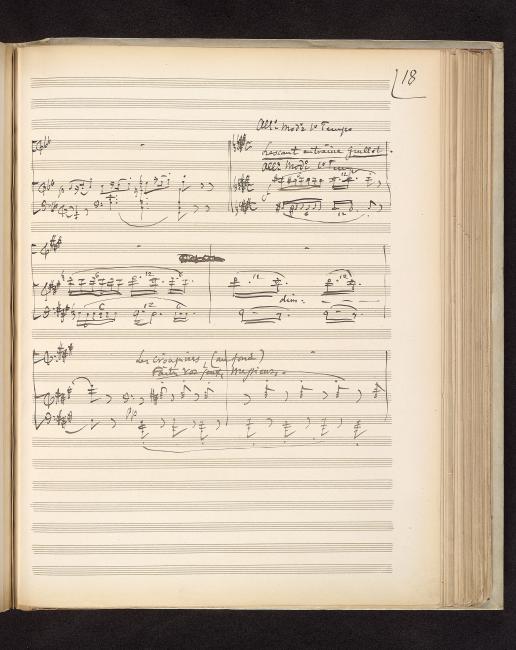 18
All.º Mod.º 1º Tempo
Lescaut entraîne Guillot.
All.º Mod.º 1º Tem
6 12
6 12
6 12 6 12 12
dim.
6 12
Les croupiers, (au fond)
Faites vos jeux, Messieurs.
pp